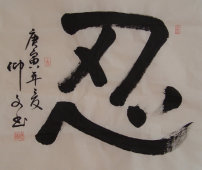 忍
庚寅年夏
仰文书